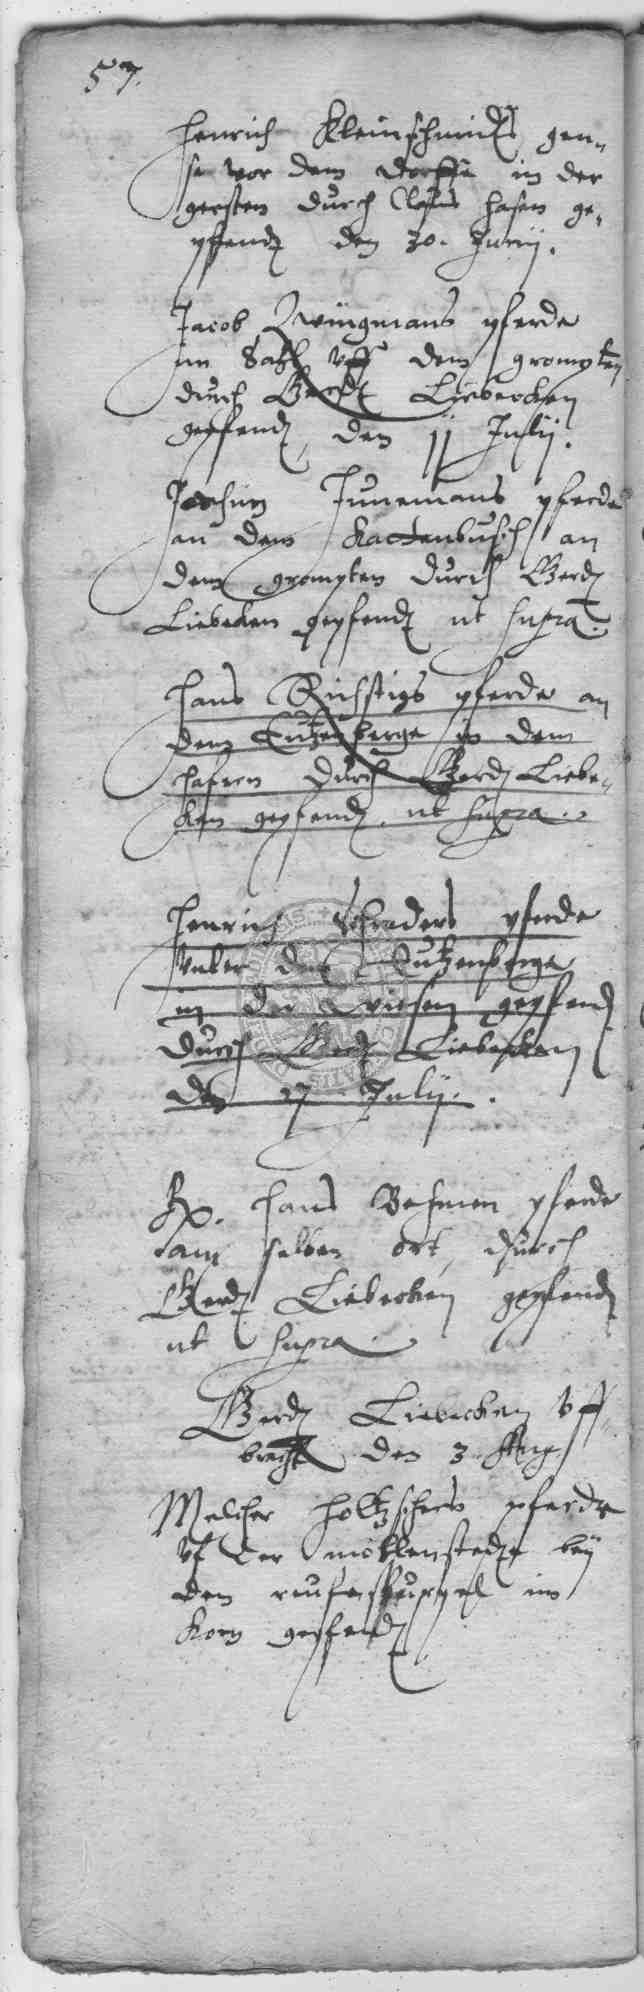 57.
Henrich Kleinschmides gen-
se vor dem dorffe in der
gersten durch Clashasen ge-
pfend den 30. Junij.
Jacob Zwingmans pferde
im vff dem grompten
durch Gerd Liebecken
gepfend, den jj Julij.
Jochim Junemans pferde
an dem Kattenbusch an
dem grompten durch Gerd
Liebeken gepfend ut supra.
Hans Richstigs pferde an
dem Lutzenberge in dem
hafern durch Gerd Liebe-
ken gepfend, ut supra.
Henrich Schraders pferde
vnter dem Lutzenberge
in der wiesen gepfend
durch Gerd Liebecken
den 17 Julij.
Hans Behmen pferde
am selben ort, durch
Gerd Liebecken gepfend
ut supra
Gerd Liebecken vff
bracht den 3 Aug
Melcher Holtzschers pferde
vf der bey
dem im
Korn gepfend